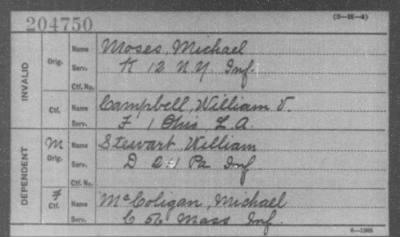 204750
(3-25-4)
INVALID
Orig.
Name Moses, Michael
Serv. K 12 N.Y. Inf.
Ctf. No.
Ctf.
Name Campbell, William V.
Serv. F 1 Ohio L. A.
DEPENDENT
M
Orig.
Name Stewart, William
Serv. D 211 Pa Inf
Ctf. No.
F
Ctf.
Name McColigan, Michael
Serv. C 56 Mass Inf.